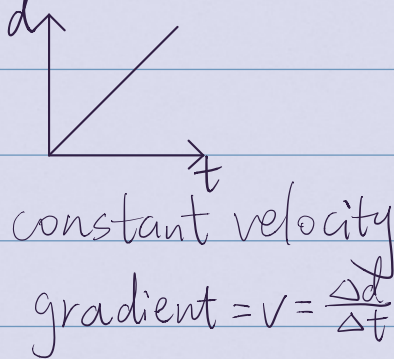 d
t
constant velocity
gradient = v = Δd/Δt